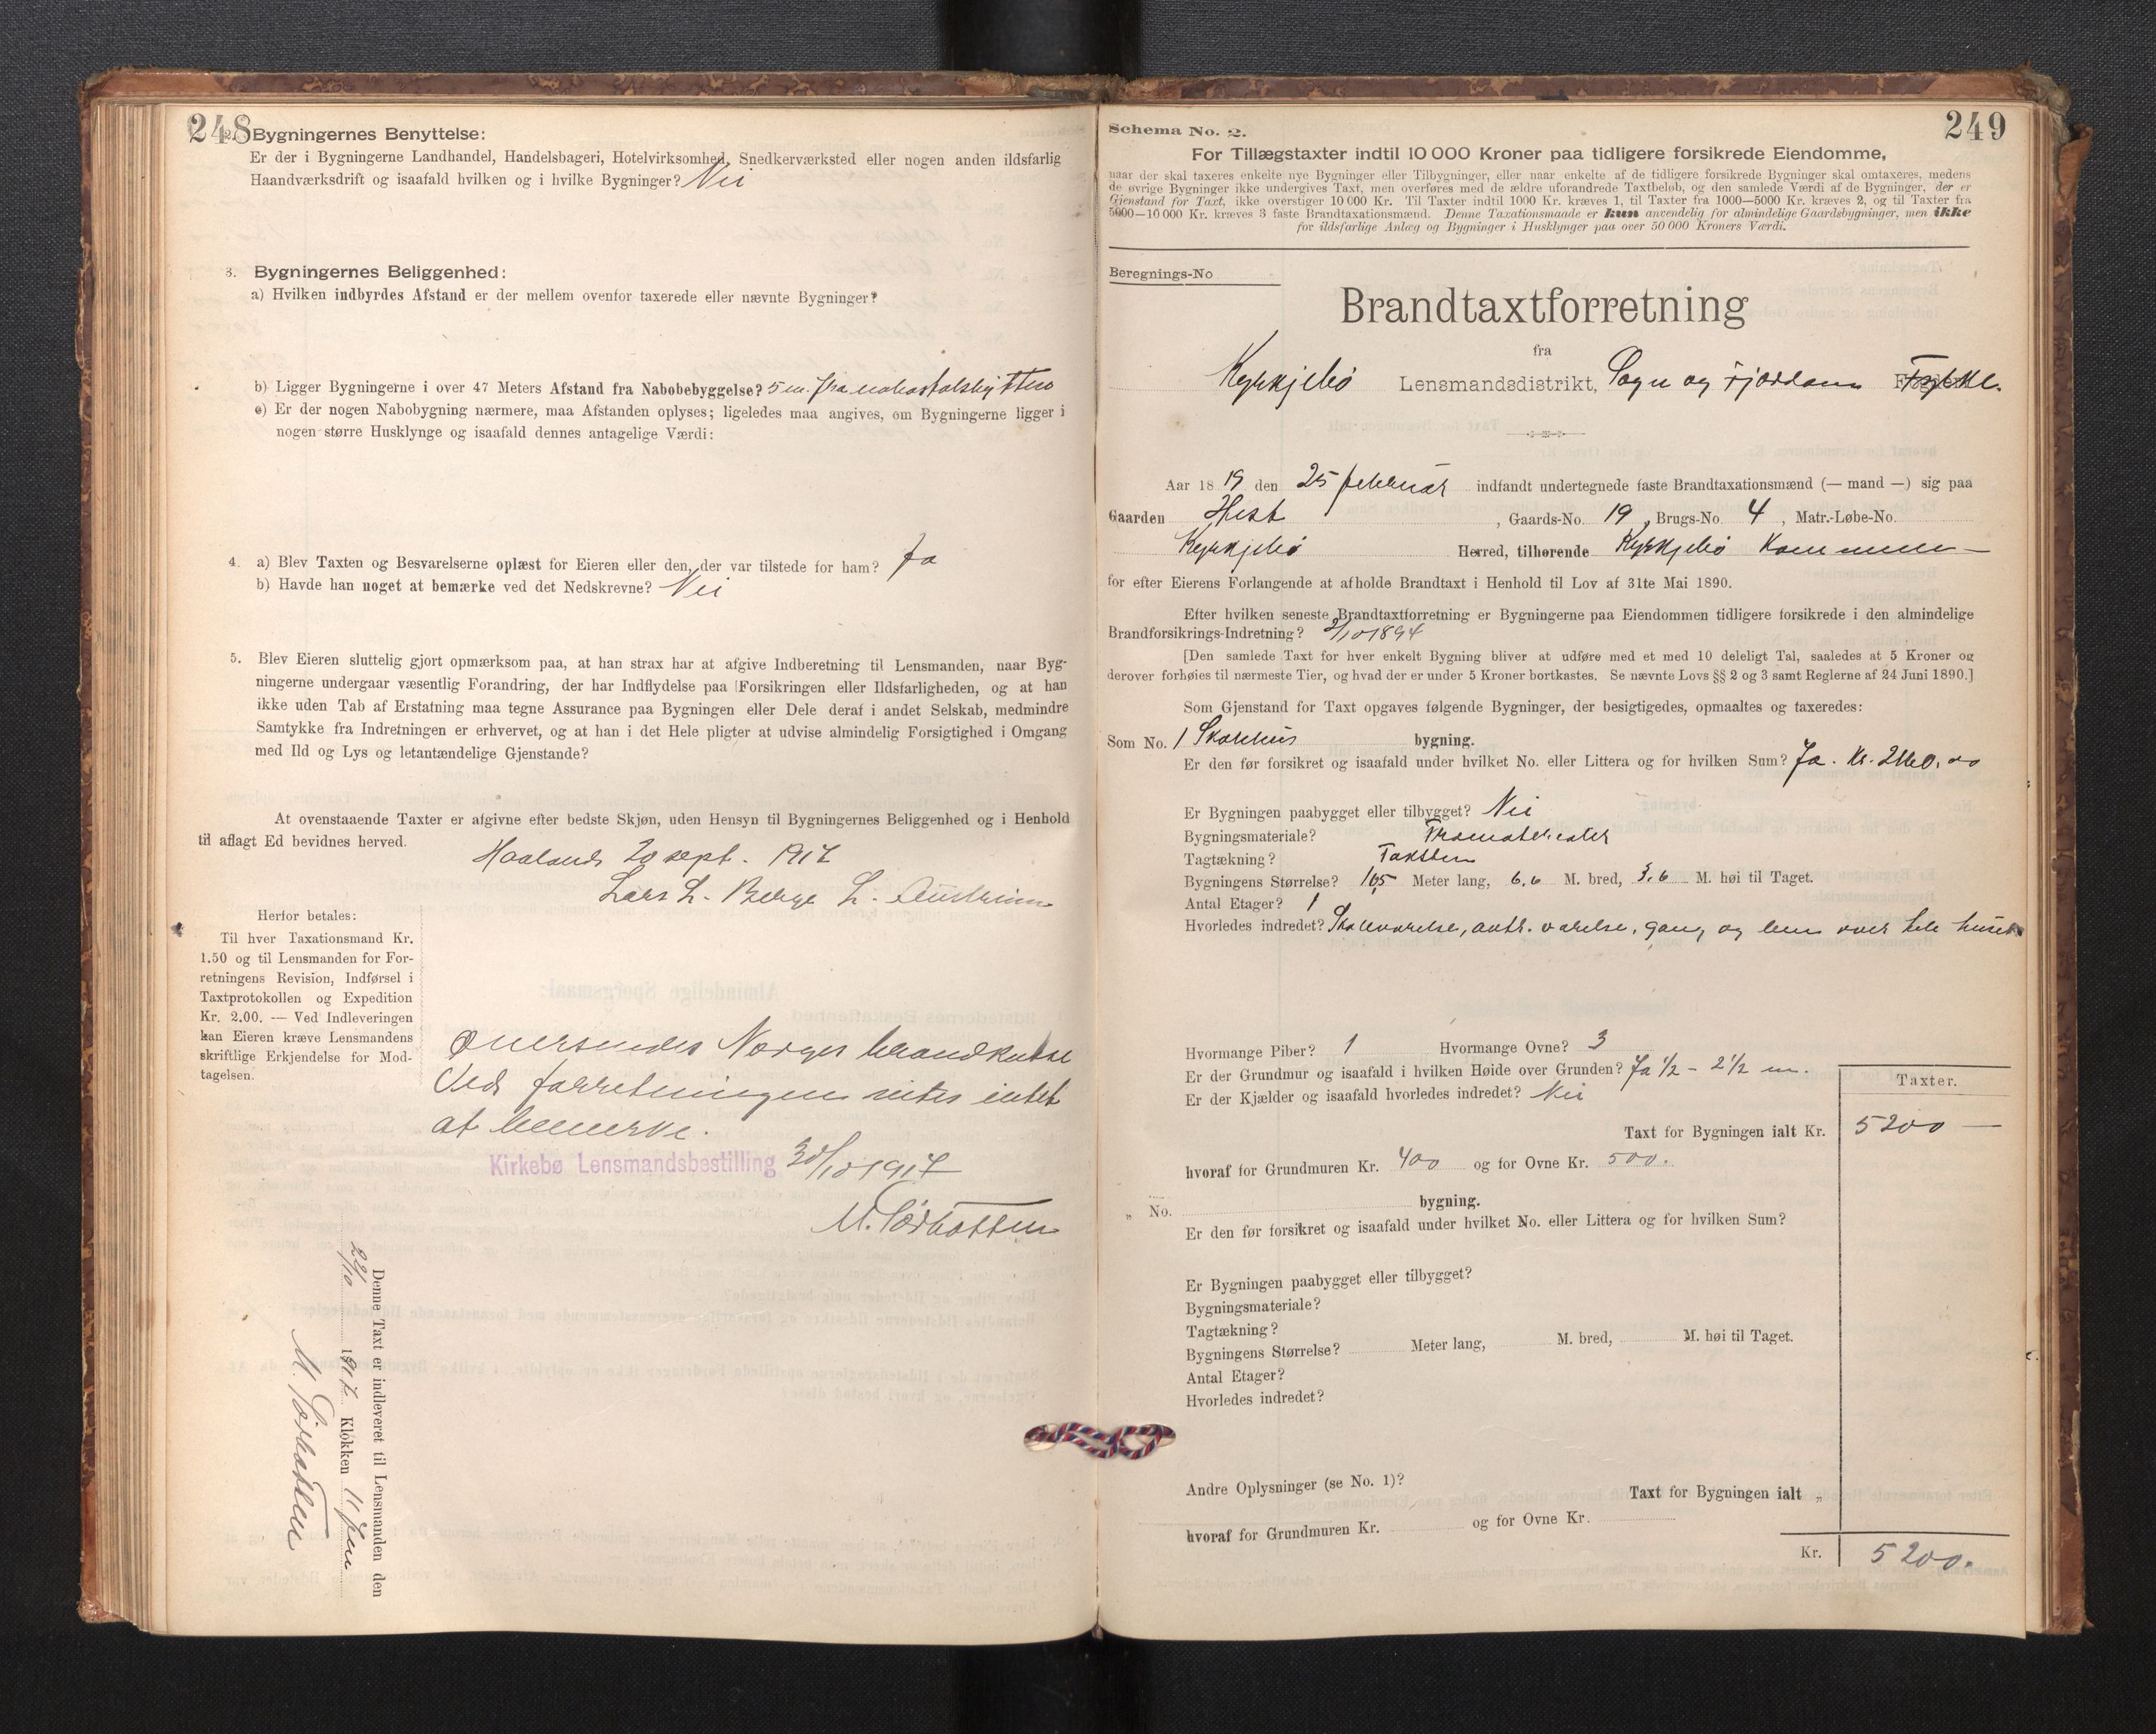 248
2. Bygningernes Benyttelse:
Er der i Bygningerne Landhandel, Handelsbageri, Hotelvirksomhed, Snedkerværksted eller nogen anden ildsfarlig
Haandværksdrift og isaafald hvilken og i hvilke Bygninger? Nei
3. Bygningernes Beliggenhed:
a) Hvilken indbyrdes Afstand er der mellem ovenfor taxerede eller nævnte Bygninger?
b) Ligger Bygningerne i over 47 Meters Afstand fra Nabobebyggelse? 5 m. fra nabostølshytten
c) Er der nogen Nabobygning nærmere, maa Afstanden oplyses; ligeledes maa angives, om Bygningerne ligger i
nogen større Husklynge og isaafald dennes antagelige Værdi:
4. a) Blev Taxten og Besvarelserne oplæst for Eieren eller den, der var tilstede for ham? Ja
b) Havde han noget at bemærke ved det Nedskrevne? Nei
5. Blev Eieren sluttelig gjort opmærksom paa, at han strax har at afgive Indberetning til Lensmanden, naar Byg-
ningerne undergaar væsentlig Forandring, der har Indflydelse paa Forsikringen eller Ildsfarligheden, og at han
ikke uden Tab af Erstatning maa tegne Assurance paa Bygningen eller Dele deraf i andet Selskab, medmindre
Samtykke fra Indretningen er erhvervet, og at han i det Hele pligter at udvise almindelig Forsigtighed i Omgang
med Ild og Lys og letantændelige Gjenstande?
At ovenstaaende Taxter er afgivne efter bedste Skjøn, uden Hensyn til Bygningernes Beliggenhed og i Henhold
til aflagt Ed bevidnes herved.
Haaland 20 sept. 1917
Lars L. Berge L. Austreim
Herfor betales:
Til hver Taxationsmand Kr.
1.50 og til Lensmanden for For-
retningens Revision, Indførsel i
Taxtprotokollen og Expedition
Kr. 2.00. — Ved Indleveringen
kan Eieren kræve Lensmandens
skriftlige Erkjendelse for Mod-
tagelsen.
Oversendes Norges brandkasse
Ved forretningen vites intet
at bemerke.
Kirkebø Lensmandsbestilling 30/10 1917
M. Sørbotten
Denne Taxt er indleveret til Lensmanden den
22/10 1917 Klokken 11 fm
M. Sørbotten
249
Schema No. 2.
For Tillægstaxter indtil 10 000 Kroner paa tidligere forsikrede Eiendomme,
naar der skal taxeres enkelte nye Bygninger eller Tilbygninger, eller naar enkelte af de tidligere forsikrede Bygninger skal omtaxeres, medens
de øvrige Bygninger ikke undergives Taxt, men overføres med de ældre uforandrede Taxtbeløb, og den samlede Værdi af de Bygninger, der er
Gjenstand for Taxt, ikke overstiger 10 000 Kr. Til Taxter indtil 1000 Kr. kræves 1, til Taxter fra 1000—5000 Kr. kræves 2, og til Taxter fra
5000—10 000 Kr. kræves 3 faste Brandtaxationsmænd. Denne Taxationsmaade er kun anvendelig for almindelige Gaardsbygninger, men ikke
for ildsfarlige Anlæg og Bygninger i Husklynger paa over 50 000 Kroners Værdi.
Beregnings-No
Brandtaxtforretning
fra
Kyrkjebø Lensmandsdistrikt, Sogn og Fjordane Fylke.
Aar 18 19 den 25 februar indfandt undertegnede faste Brandtaxationsmænd (— mand —) sig paa
Gaarden Hest, Gaards-No. 19, Brugs-No. 4, Matr.-Løbe-No.
Kyrkjebø Herred, tilhørende Kyrkjebø Kommune —
for efter Eierens Forlangende at afholde Brandtaxt i Henhold til Lov af 31te Mai 1890.
Efter hvilken seneste Brandtaxtforretning er Bygningerne paa Eiendommen tidligere forsikrede i den almindelige
Brandforsikrings-Indretning? 2/10 1894
[Den samlede Taxt for hver enkelt Bygning bliver at udføre med et med 10 deleligt Tal, saaledes at 5 Kroner og
derover forhøies til nærmeste Tier, og hvad der er under 5 Kroner bortkastes. Se nævnte Lovs §§ 2 og 3 samt Reglerne af 24 Juni 1890.]
Som Gjenstand for Taxt opgaves følgende Bygninger, der besigtigedes, opmaaltes og taxeredes:
Som No. 1 Skolehus bygning.
Er den før forsikret og isaafald under hvilket No. eller Littera og for hvilken Sum? Ja. Kr.
Er Bygningen paabygget eller tilbygget? Nei
Bygningsmateriale? Træmaterialer
Tagtækning? Taksten
Bygningens Størrelse? 10,5 Meter lang, 6,6 M. bred, 3,6 M. høi til Taget.
Antal Etager? 1
Hvorledes indredet? Skoleværelse, andr. værelse, gang og lem over hele huset
Hvormange Piber? 1 Hvormange Ovne? 3
Er der Grundmur og isaafald i hvilken Høide over Grunden? Ja 1/2 - 2 1/2 m.
Er der Kjælder og isaafald hvorledes indredet? Nei
Taxter.
Taxt for Bygningen ialt Kr. 5200 —
hvoraf for Grundmuren Kr. 400 og for Ovne Kr. 500.
„ No. bygning.
Er den før forsikret og isaafald under hvilket No. eller Littera og for hvilken Sum?
Er Bygningen paabygget eller tilbygget?
Bygningsmateriale?
Tagtækning?
Bygningens Størrelse? Meter lang, M. bred, M. høi til Taget.
Antal Etager?
Hvorledes indredet?
Andre Oplysninger (se No. 1)?
Taxt for Bygningen ialt „
hvoraf for Grundmuren Kr. og for Ovne Kr.
Kr. 5200.